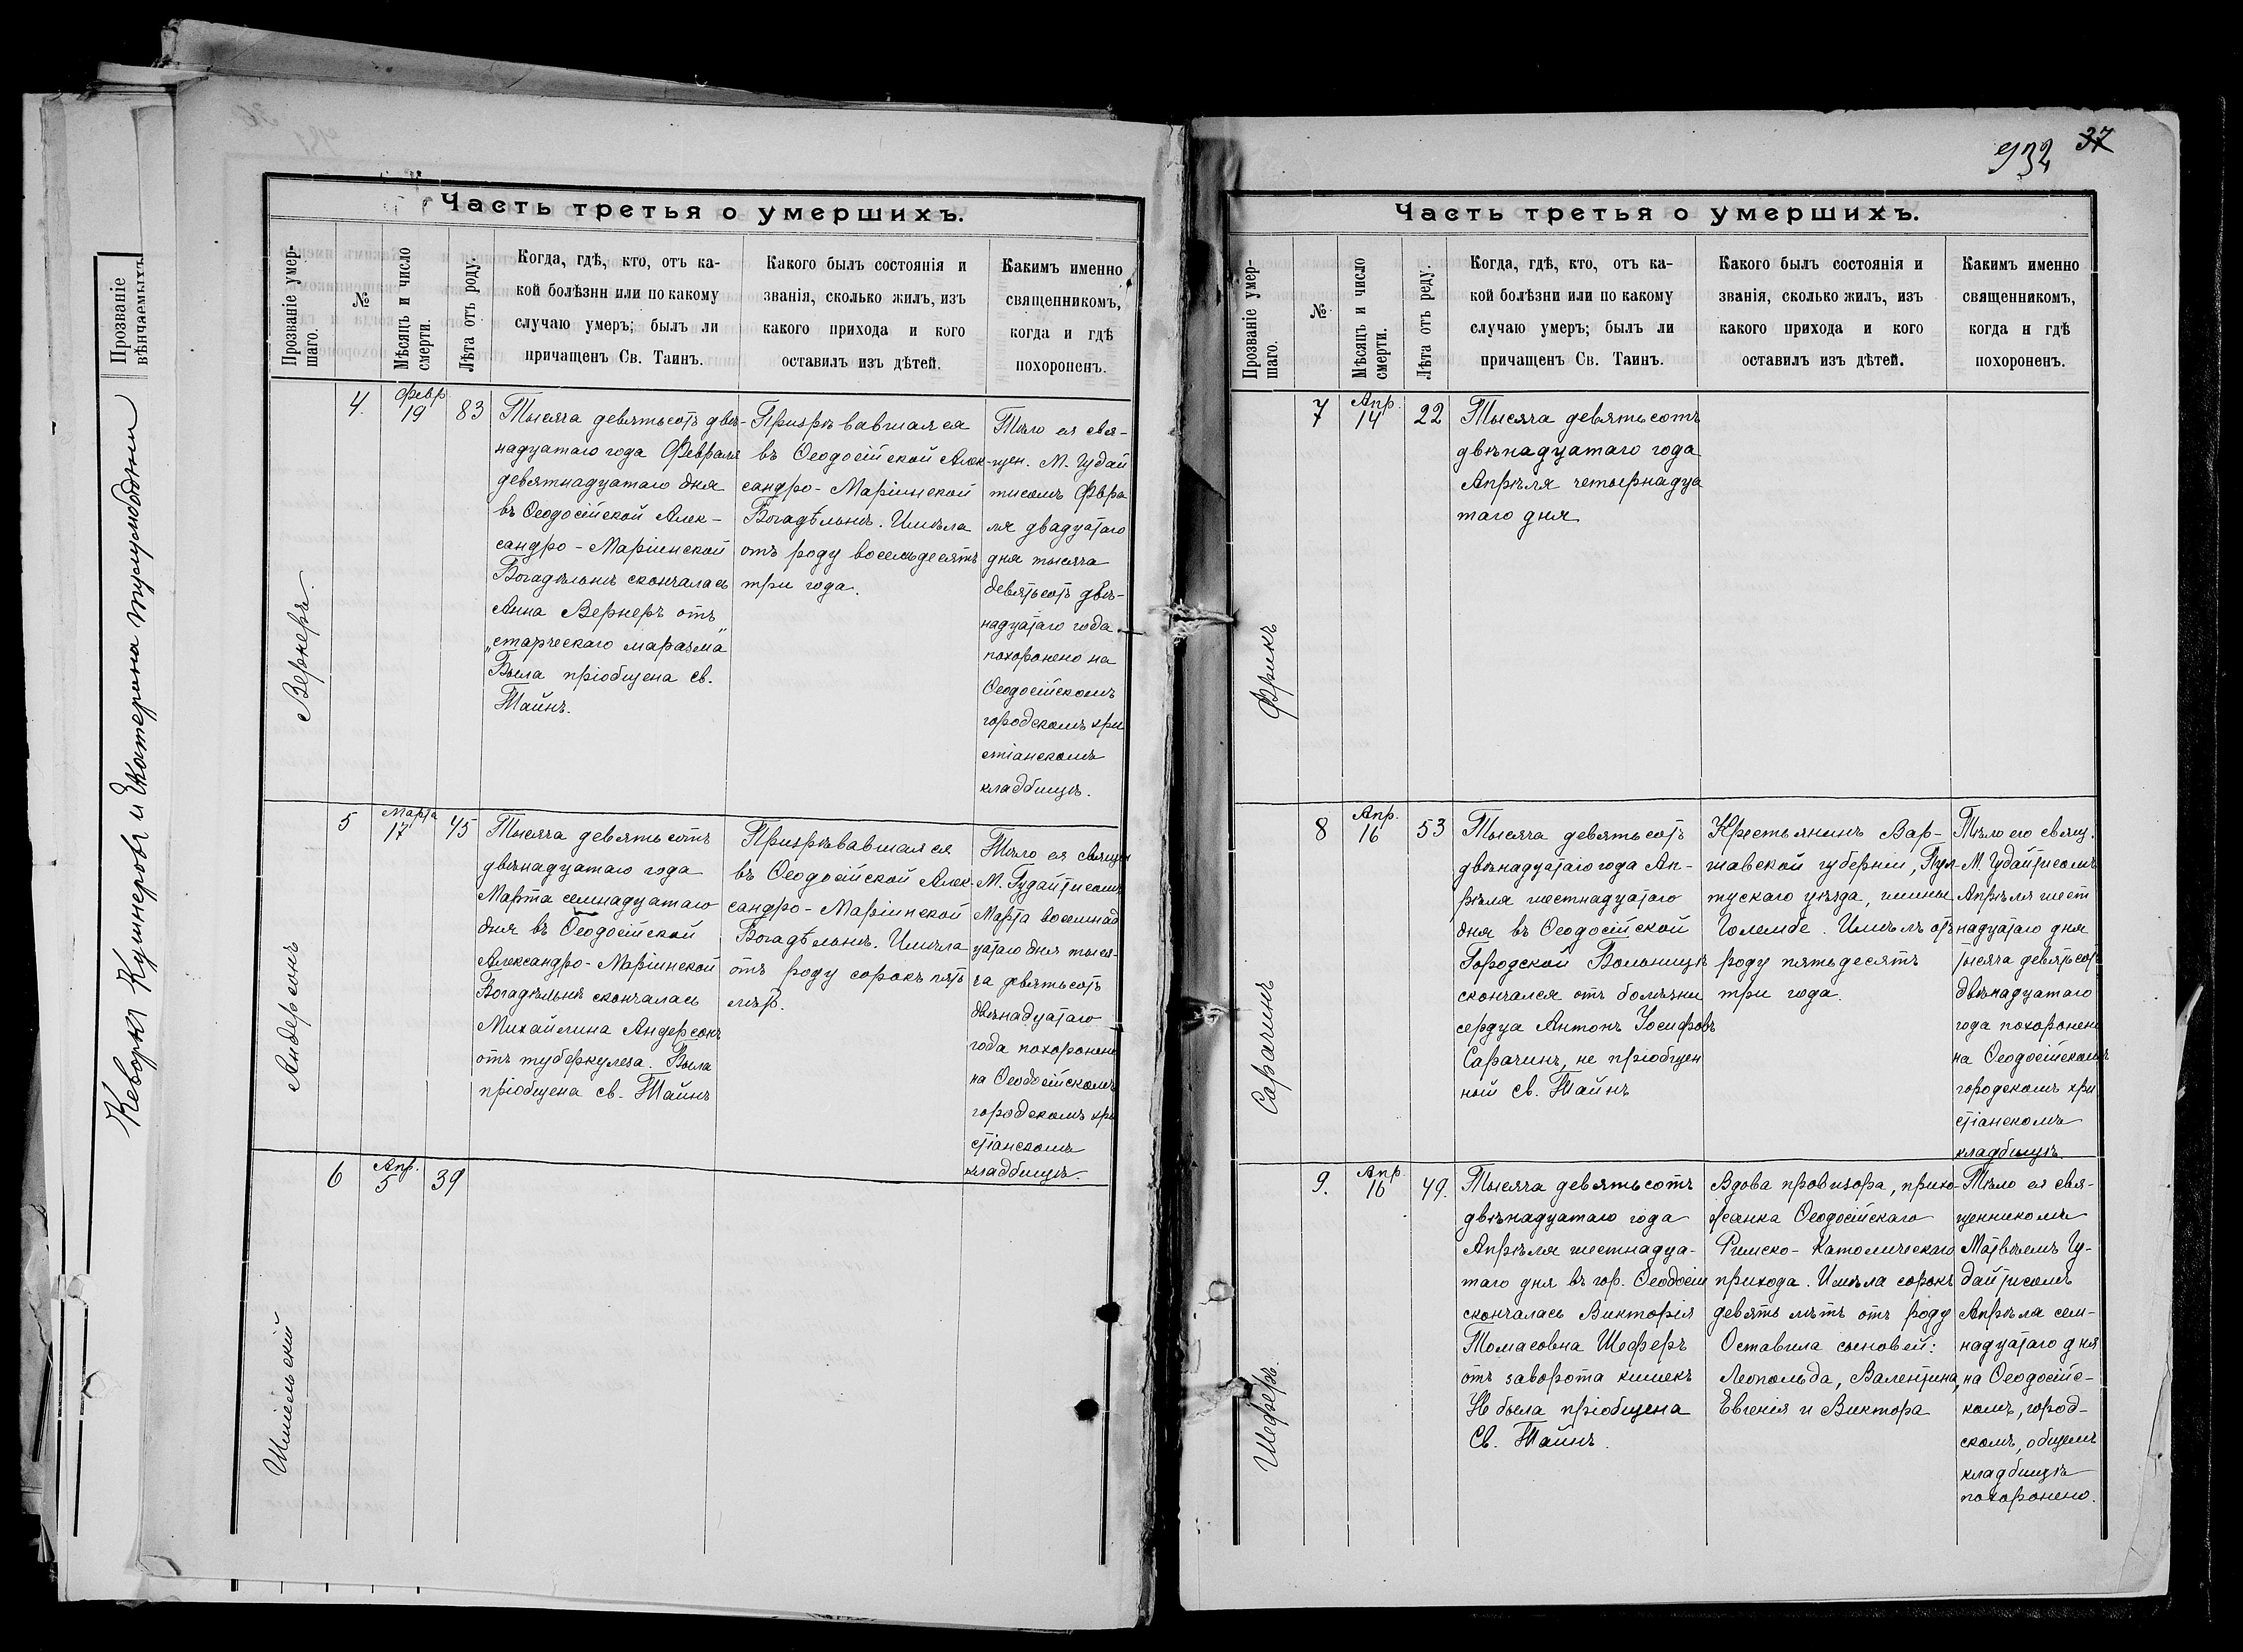 Прозваніе
вѣнчаемыхъ
Кеворкъ Кушнеровъ и Екатерина
Часть третья о умершихъ.
Прозваніе умер-
шаго.
№
Мѣсяцъ и число
смерти.
Лѣта отъ роду.
Когда, гдѣ, кто, отъ ка-
кой болѣзни или по какому
случаю умеръ; былъ ли
причащенъ Св. Таинъ.
Какого былъ состоянія и
званія, сколько жилъ, изъ
какого прихода и кого
оставилъ изъ дѣтей.
Каким именно
священникомъ,
когда и гдѣ
похороненъ.
Вернеръ.
4.
Февр
19
83
Тысяча девятьсотъ двѣ-
надцатаго года Февраля
девятнадцатаго дня
въ Ѳеодосійской Алек-
сандро-Маріинской
Богадѣльнѣ скончалась
Анна Вернеръ отъ
„старческаго маразма"
Была пріобщена св.
Тайнъ.
Призрѣвавшаяся
въ Ѳеодосійской Алек-
сандро-Маріинской
Богадѣльнѣ. Имѣла
отъ роду восемьдесятъ
три года.
Тѣло ея свя-
щен. М. Гудай
тисомъ Февра
ля двадцатаго
дня тысяча
девятьсотъ двѣ-
надцатаго года
похоронено на
Ѳеодосійскомъ
городскомъ хри
стіанскомъ
кладбищѣ.
Андерсонъ
5
Марта
17
45
Тысяча девятьсотъ
двѣнадцатаго года
Марта семнадцатаго
дня въ Ѳеодосійской
Александро-Маріинской
Богадѣльнѣ скончалась
Михайлина Андерсонъ
отъ туберкулеза. Была
пріобщена св. Тайнъ
Призрѣвавшаяся
въ Ѳеодосійской Алек-
сандро-Маріинской
Богадѣльнѣ. Имѣла
отъ роду сорокъ пять
лѣтъ.
Тѣло ея священ
М. Гудайтисомъ
Марта восемнад
цатаго дня тыся-
ча девятьсотъ
двѣнадцатаго
года похоронено
на Ѳеодосійскомъ
городскомъ хри
стіанскомъ
кладбищѣ.
6
Апр.
5
39
932 37
Часть третья о умершихъ.
Прозваніе умер-
шаго.
№
Мѣсяцъ и число
смерти.
Лѣта отъ роду.
Когда, гдѣ, кто, отъ ка-
кой болѣзни или по какому
случаю умеръ; былъ ли
причащенъ Св. Таинъ.
Какого былъ состоянія и
званія, сколько жилъ, изъ
какого прихода и кого
оставилъ изъ дѣтей.
Каким именно
священникомъ,
когда и гдѣ
похороненъ.
Фрикъ
7
Апр.
14
22
Тысяча девятьсотъ
двѣнадцатаго года
Апрѣля четырнадца
таго дня
Сарачинъ
8
Апр.
16
53
Тысяча девятьсотъ
двѣнадцатаго года Ап-
рѣля шестнадцатаго
дня въ Ѳеодосійской
Городской Больницѣ
скончался отъ болѣзни
сердца Антонъ Іосифовъ
Сарачинъ, не пріобщен
ный Св. Тайнъ
Крестьянинъ Вар-
шавской губерніи, Пул-
тускаго уѣзда, гмины
Голембе. Имѣлъ отъ
роду пятьдесятъ
три года.
Тѣло его свящ.
М. Гудайтисомъ
Апрѣля шест
надцатаго дня
тысяча девятьсотъ
двѣнадцатаго
года похоронено
на Ѳеодосійскомъ
городскомъ хри
стіанскомъ
кладбищѣ
Шеферъ.
9.
Апр.
16
49.
Тысяча девятьсотъ
двѣнадцатаго года
Апрѣля шестнадца-
таго дня въ гор. Ѳеодосіи
скончалась Викторія
Томасовна Шеферъ
отъ заворота кишекъ
Не была пріобщена
Св. Тайнъ.
Вдова провизора, прихо-
жанка Ѳеодосійскаго
Римско-Католическаго
прихода. Имѣла сорокъ
девять лѣтъ отъ роду
Оставила сыновей:
Леопольда, Валентина,
Евгенія и Виктора
Тѣло ея свя-
щенникомъ
Матвѣемъ Гу-
дайтисомъ
Апрѣля сем-
надцатаго дня
на Ѳеодосійс-
комъ, город-
скомъ, общемъ
кладбищѣ
похоронено.